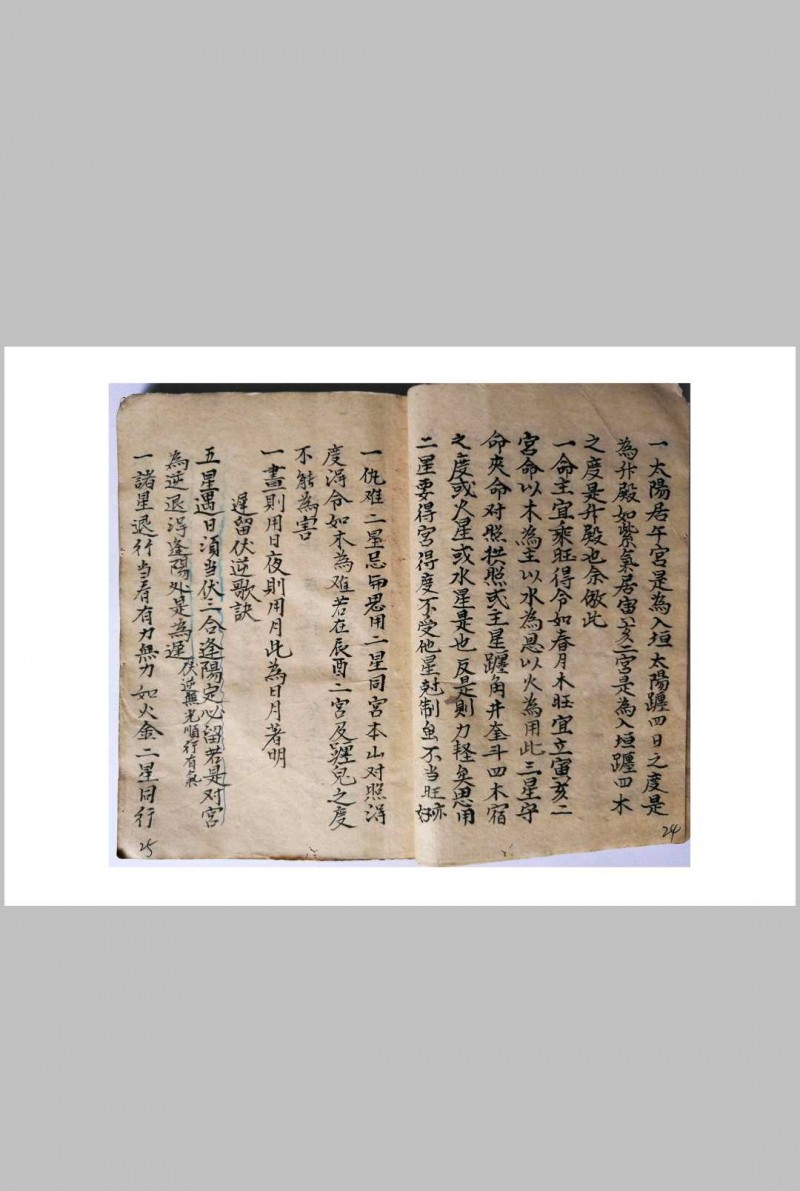 一太陽居午宮是為入垣太陽躔四日之度是
為升殿如紫氣居寅亥二宮是為入垣躔四木
之度是升殿也余倣此
一命主宜乘旺得令如春月木旺宜立寅亥二
宮命以木為主以水為恩以火為用此三星守
命夾命对照拱照或主星躔角井奎斗四木宿
之度或火星或水星是也反是則力軽矣恩用
二星要得宮得度不受他星尅制虽不当旺亦好
24
一仇难二星忌與恩用二星同宮本山对照得
度得令如木為难若在辰酉二宮及躔之度
不能為害
一晝則用日夜則用月此為日月著明
遲留伏逆歌訣
五星遇日須当伏三合逢陽定必留若是对宮
為逆退得逢陽处是為遲 伏逆無光順行有氣
一諸星退行当看有力無力如火金二星同行
25